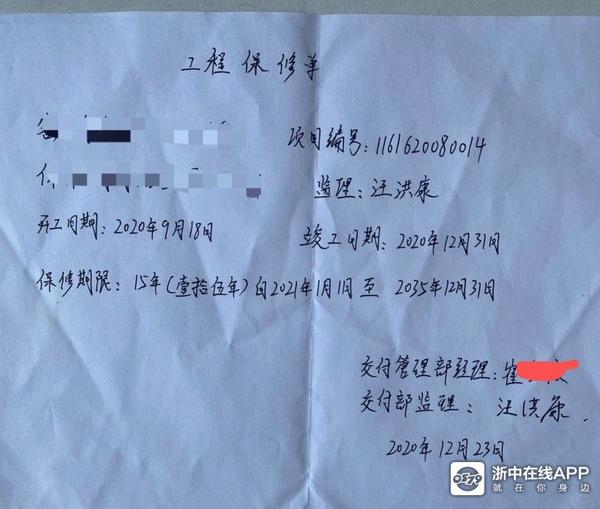 工程保修单
项目编号:1161620080014
监理:汪洪康
开工日期:2020年9月18日
竣工日期:2020年12月31日
保修期限:15年(壹拾伍年)自2021年1月1日至2035年12月31日
交付管理部经理:崔
交付部监理:汪洪康.
2020年12月23日
浙中在线APP
就在你身边